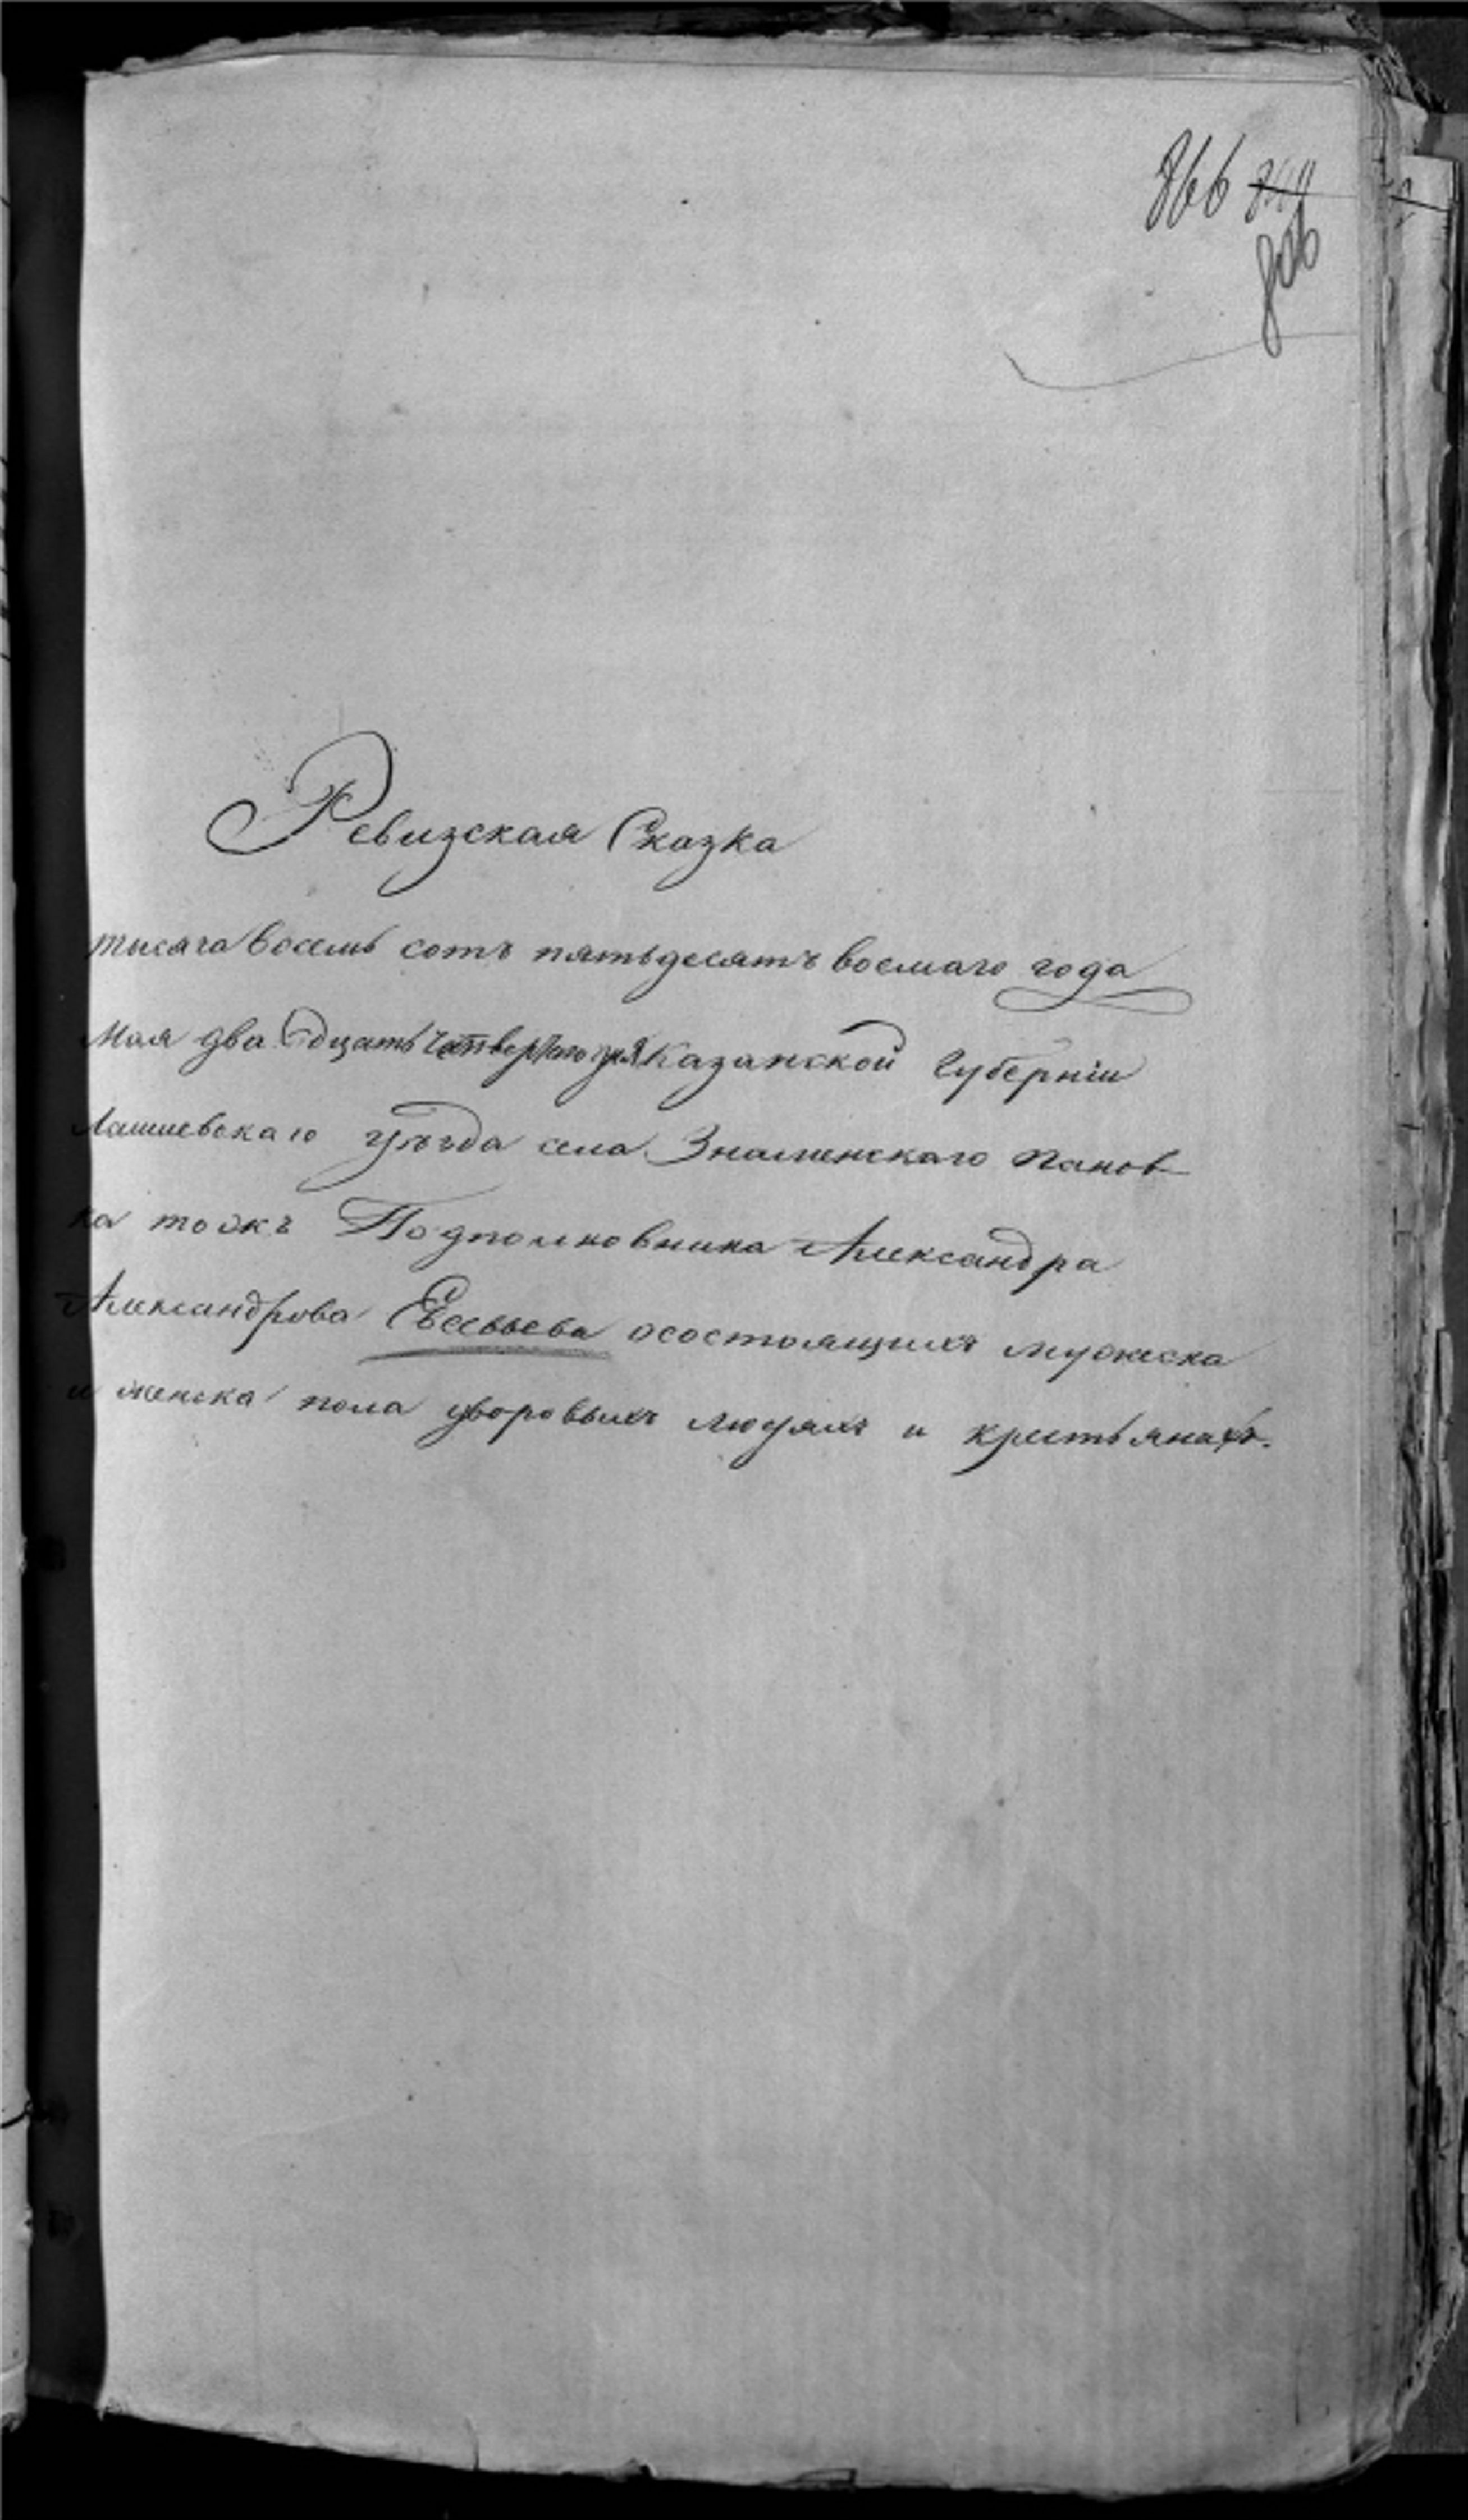 866
806
Ревизская Сказка
тысяча восемь сотъ пятьдесятъ восмаго года
Мая двадцать четвертого дня Казанской Губерніи
Лаишевскаго уѣзда села Знаменскаго Панов
ка тожъ Подполковника Александра
Александрова Евсевьева осостоящихъ мужеска
и женска пола дворовыхъ людяхъ и крестьянахъ.